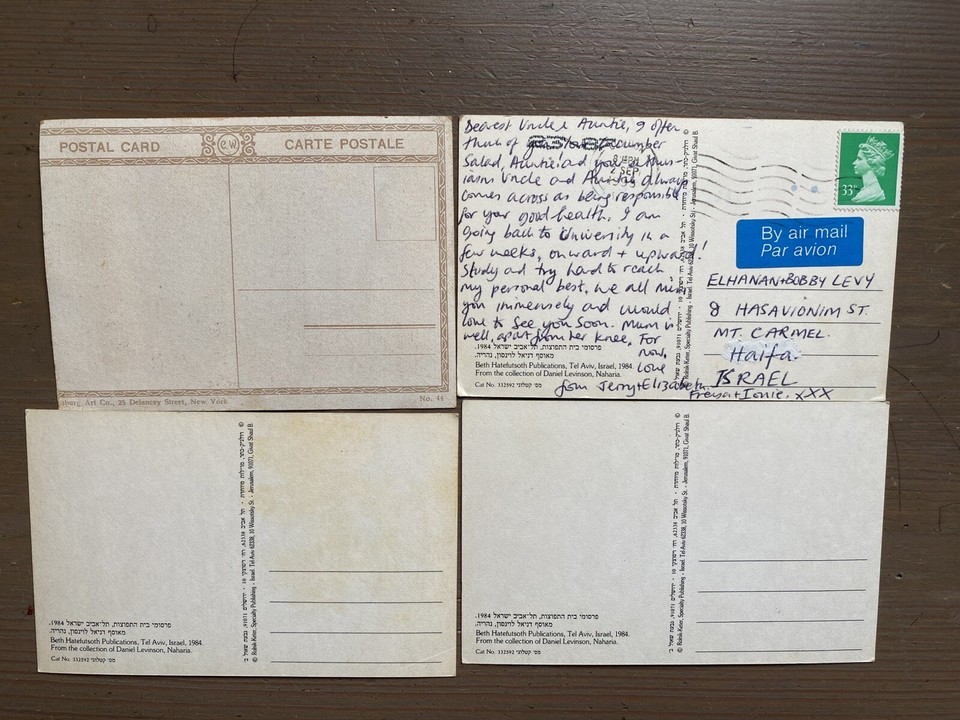 POSTAL CARD
C.W
CARTE POSTALE
Art Co., 25 Delancey Street, New York
No. 44
Dearest Uncle & Auntie, I often
think of cucumber
Salad, Auntie ad your enthus-
iasm Uncle and Auntie always
comes across as being responsible
for your good health. I am
Going back to University in a
few weeks, onward + upward!
Study ad try hard to reach
my personal best, we all miss
you immensely and would
love to see you soon. Mum is
well, apart from her knee, For
now,
Love
from Jerry+Elizabeth
Freya+Ionie. xXX
2 SEP
33
By air mail
Par avion
ELHANAN+BOBBY LEVY
8 HASAVIONIM ST.
MT. CARMEL.
Haifa
ISRAEL
פרסומי בית התפוצות, תל־אביב ישראל 1984.
מאוסף דניאל לוינסון, נהריה.
Beth Hatefutsoth Publications, Tel Aviv, Israel, 1984.
From the collection of Daniel Levinson, Naharia.
Cat No. 332592 מס׳ קטלוגי
פרסומי בית התפוצות, תל־אביב ישראל 1984.
מאוסף דניאל לוינסון, נהריה.
Beth Hatefutsoth Publications, Tel Aviv, Israel, 1984.
From the collection of Daniel Levinson, Naharia.
Cat No. 332592 מס׳ קטלוגי
© Rolnik-Keter, Specialty Publishing - Israel. Tel Aviv 62338, 10 Wissotsky St. - Jerusalem, 91071, Givat Shaul B.
פרסומי בית התפוצות, תל־אביב ישראל 1984.
מאוסף דניאל לוינסון, נהריה.
Beth Hatefutsoth Publications, Tel Aviv, Israel, 1984.
From the collection of Daniel Levinson, Naharia.
Cat No. 332592 מס׳ קטלוגי
© Rolnik-Keter, Specialty Publishing - Israel. Tel Aviv 62338, 10 Wissotsky St. - Jerusalem, 91071, Givat Shaul B.